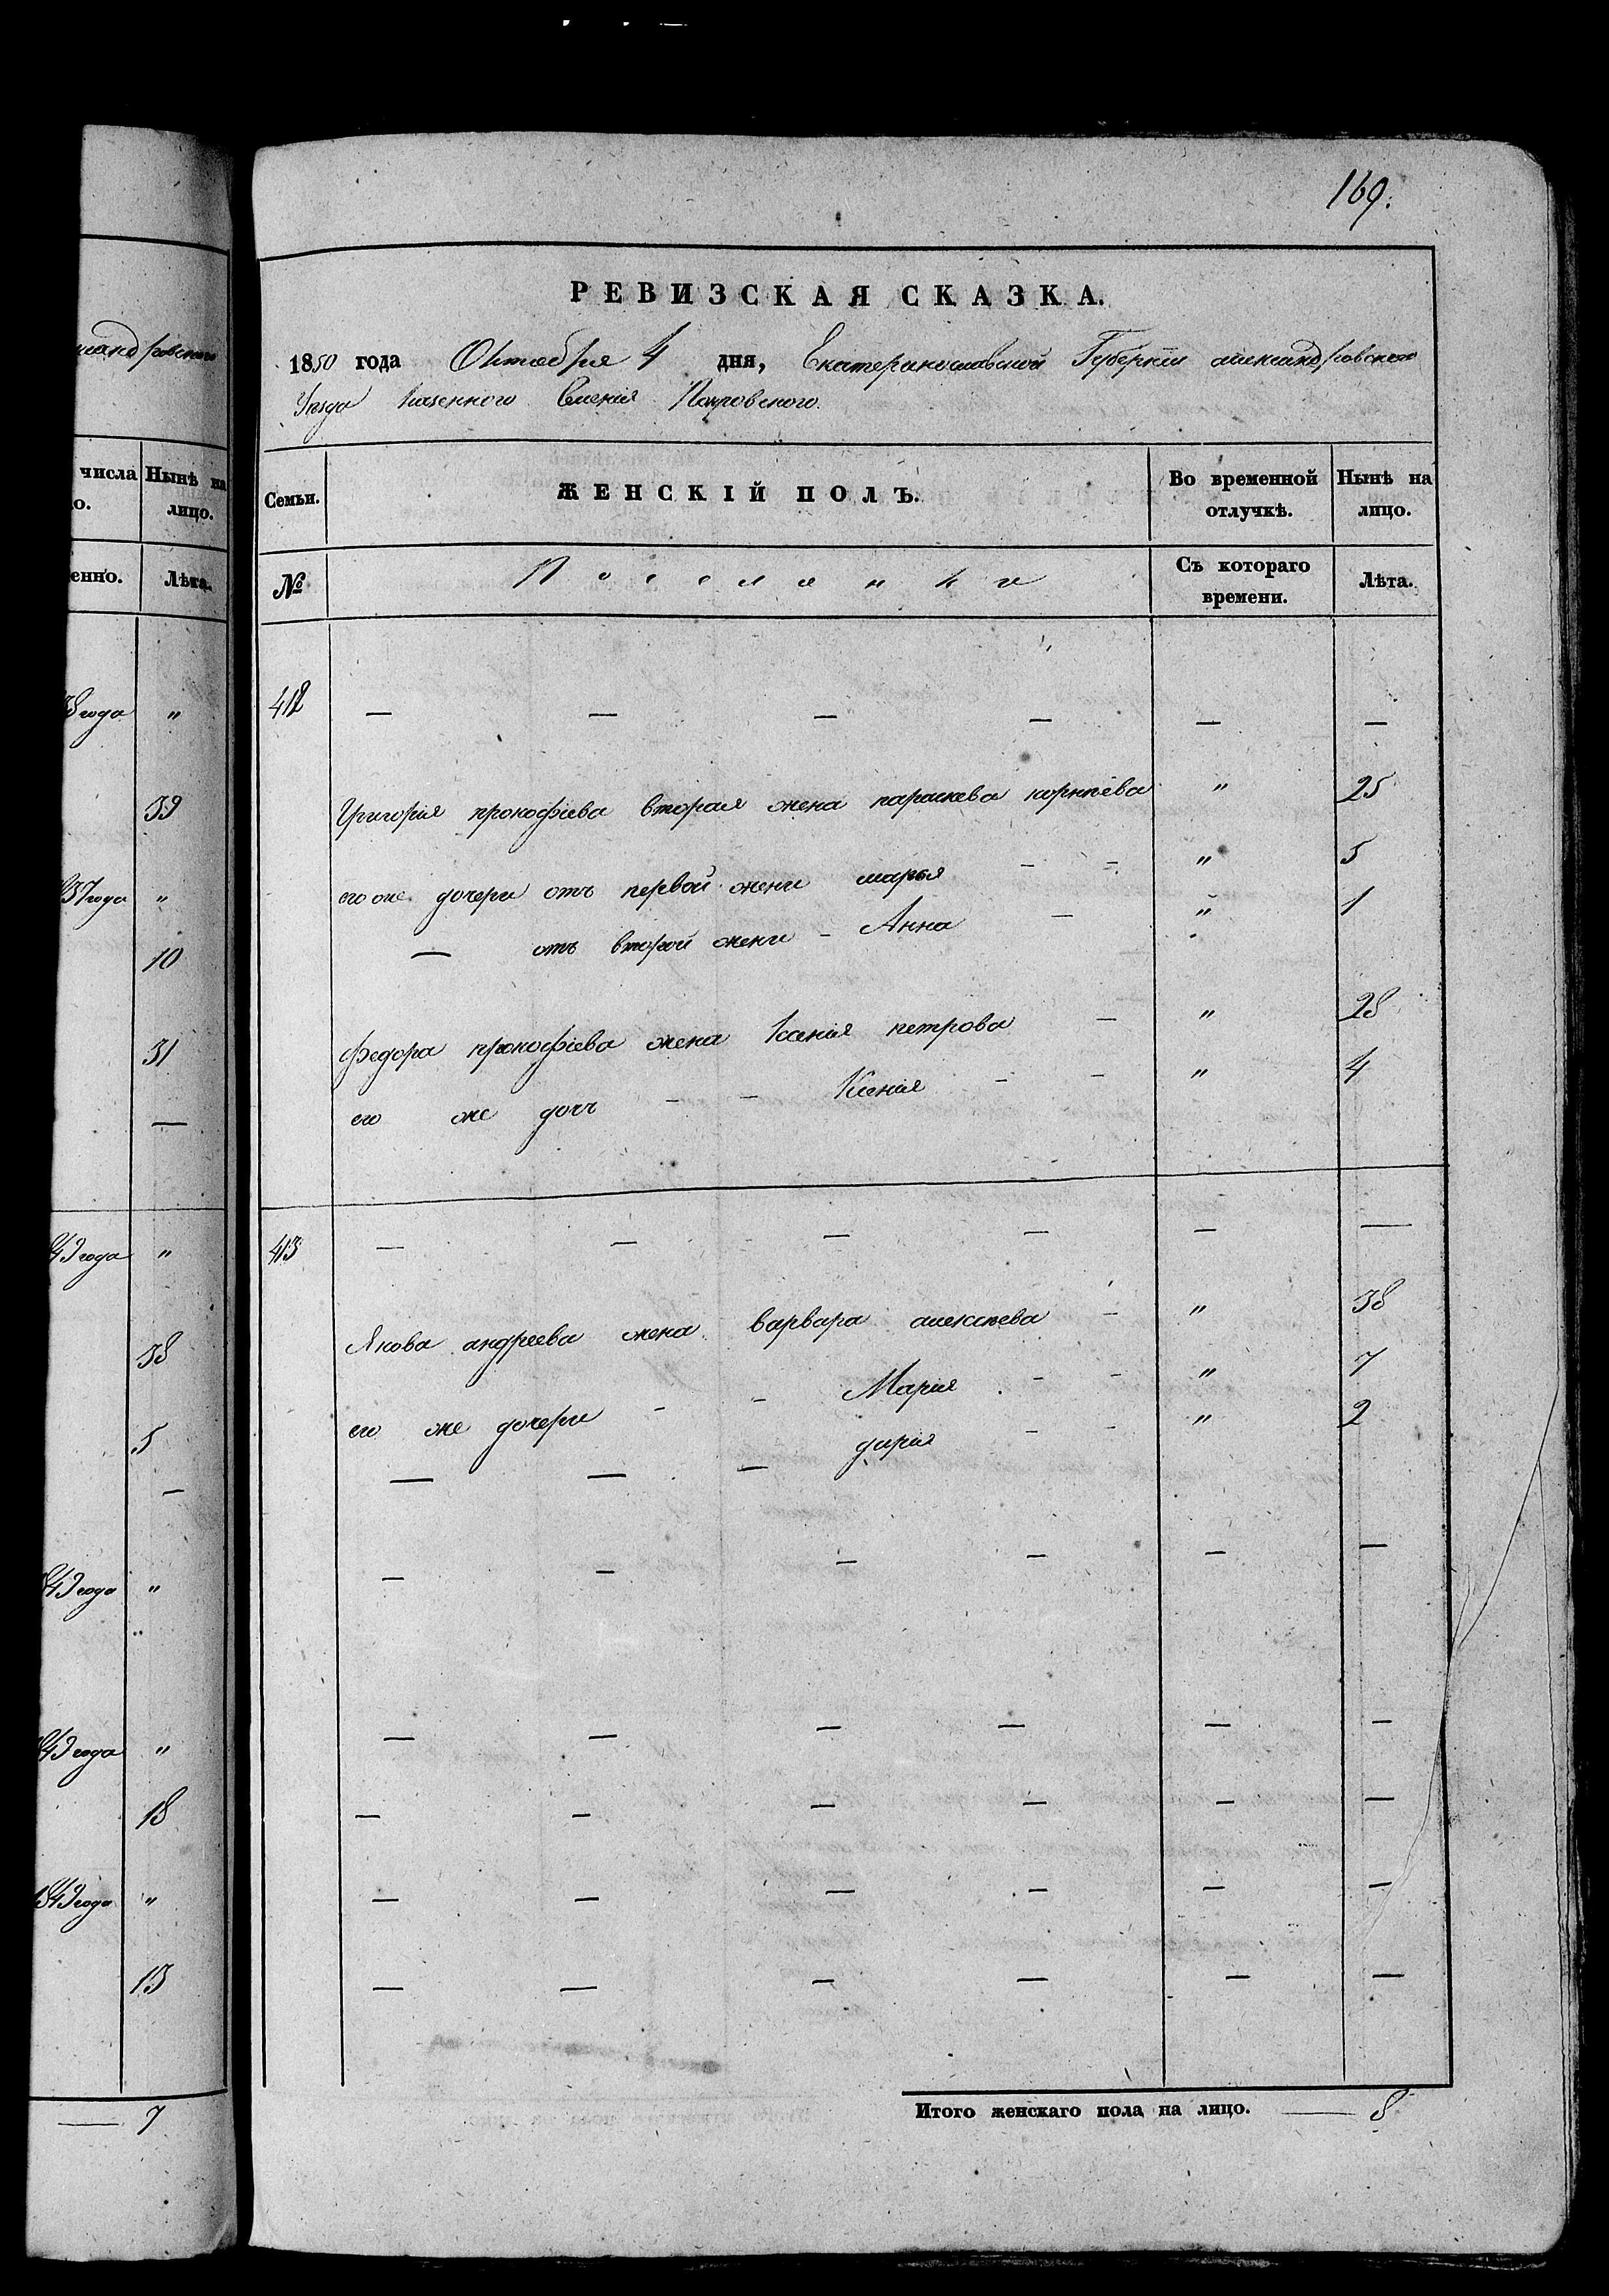 169.
РЕВИЗСКАЯ СКАЗКА.
1850 года Октября 4 дня, Екатеринославской Губернии александровского
Уезда Казенного Селения Покровского.
числа Нынѣ на лицо.
енно. Лѣта.
Семьи. ЖЕНСКІЙ ПОЛЪ. Во временной отлучкѣ. Нынѣ на лицо.
№ Поселянки Съ котораго времени. Лѣта.
38 года "
39
837 года "
10
31
—
849 года "
38
5
—
849 года "
849 года "
18
1849 года "
13
— 7
412 — — — — — —
Григорія прокофіева вторая жена параскева корнѣева " 25
его же дочери отъ первой жени марья - - " 5
— отъ второй жени - Анна — " 1
федора прокофіева жена Ксенія петрова — " 28
его же дочь - - Ксенія - - " 4
413 — — — — — —
Якова андреева жена варвара алексѣева - " 38
его же дочери - - Марія - - " 7
— — — дарія - - " 2
— — — — — —
— — — — — —
— — — — — —
— — — — — —
— — — — — —
Итого женскаго пола на лицо. — 8